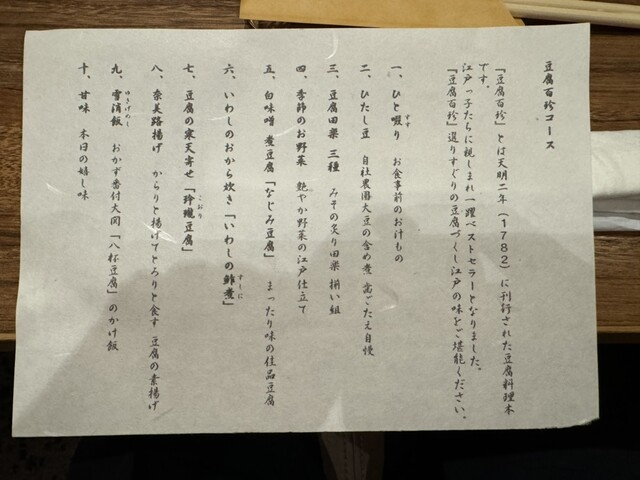 豆腐百珍コース
「豆腐百珍」とは天明二年（1782）に刊行された豆腐料理本
です。
江戸っ子たちに親しまれ一躍ベストセラーとなりました。
「豆腐百珍」選りすぐりの豆腐づくし江戸の味をご堪能ください。
一、ひと啜り　お食事前のお汁もの
すす
二、ひたし豆　自社農園大豆の含め煮 歯ごたえ自慢
三、豆腐田楽 三種　みその炙り田楽 揃い組
四、季節のお野菜　艶やか野菜の江戸仕立て
五、白味噌 煮豆腐「なじみ豆腐」　まったり味の佳品豆腐
六、いわしのおから炊き「いわしの鮓煮」
すしに
七、豆腐の寒天寄せ「玲瓏豆腐」
こおり
八、奈美路揚げ　からりと揚げてとろりと食す 豆腐の素揚げ
九、雪消飯　おかず番付大関「八杯豆腐」のかけ飯
ゆきげめし
十、甘味　本日の嬉し味